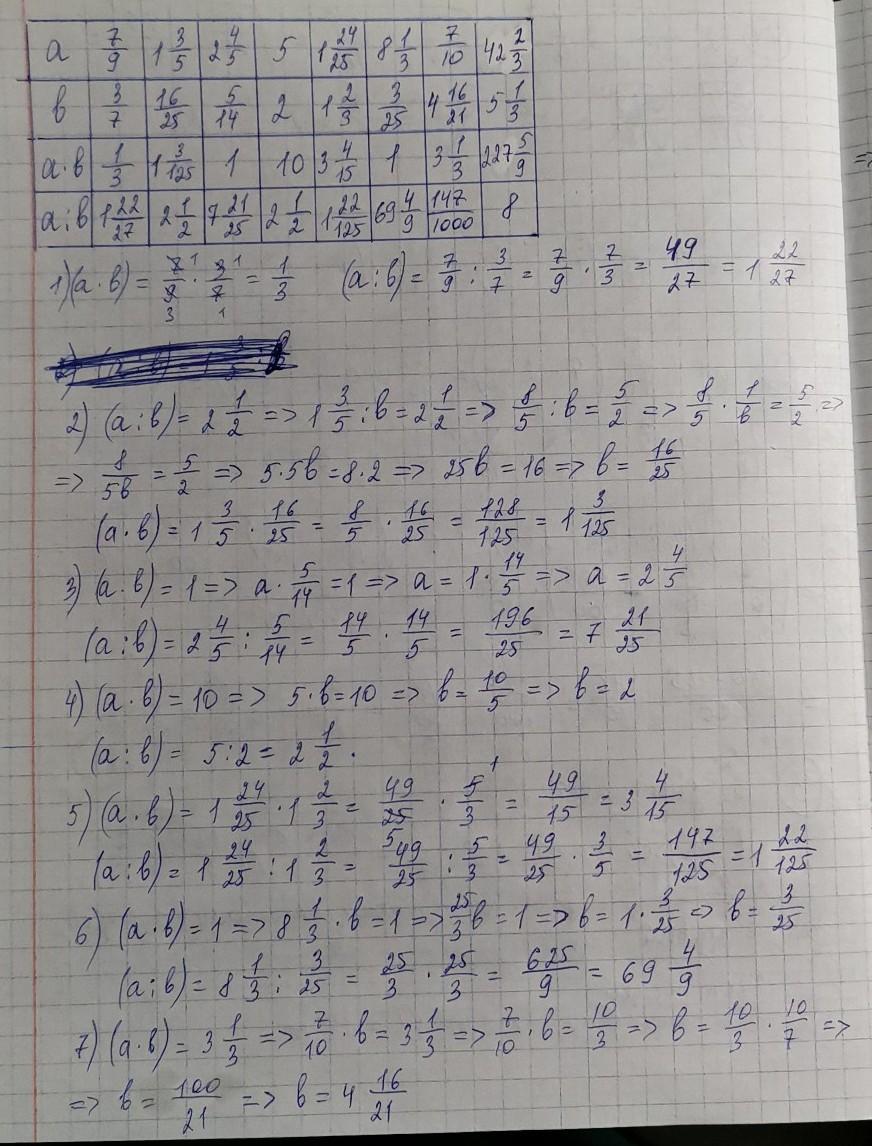 a 7/9 1 3/5 2 4/5 5 1 24/25 8 1/3 7/10 42 2/3
в 3/7 16/25 5/14 2 1 2/3 3/25 4 16/21 5 1/3
a·в 1/3 1 3/125 1 10 3 4/15 1 3 1/3 227 5/9
a:в 1 22/27 2 1/2 7 21/25 2 1/2 1 22/125 69 4/9 147/1000 8
1) (a·в) = 7/9 · 3/7 = 1/3 (a:в) = 7/9 : 3/7 = 7/9 · 7/3 = 49/27 = 1 22/27
2) (a:в) = 2 1/2 => 1 3/5 : в = 2 1/2 => 8/5 : в = 5/2 => 8/5 · 1/в = 5/2 =>
=> 8/5в = 5/2 => 5·5в = 8·2 => 25в = 16 => в = 16/25
(a·в) = 1 3/5 · 16/25 = 8/5 · 16/25 = 128/125 = 1 3/125
3) (a·в) = 1 => a · 5/14 = 1 => a = 1 · 14/5 => a = 2 4/5
(a:в) = 2 4/5 : 5/14 = 14/5 · 14/5 = 196/25 = 7 21/25
4) (a·в) = 10 => 5·в = 10 => в = 10/5 => в = 2
(a:в) = 5:2 = 2 1/2.
5) (a·в) = 1 24/25 · 1 2/3 = 49/25 · 5/3 = 49/15 = 3 4/15
(a:в) = 1 24/25 : 1 2/3 = 49/25 : 5/3 = 49/25 · 3/5 = 147/125 = 1 22/125
6) (a·в) = 1 => 8 1/3 · в = 1 => 25/3 в = 1 => в = 1 · 3/25 => в = 3/25
(a:в) = 8 1/3 : 3/25 = 25/3 · 25/3 = 625/9 = 69 4/9
7) (a·в) = 3 1/3 => 7/10 · в = 3 1/3 => 7/10 · в = 10/3 => в = 10/3 · 10/7 =>
=> в = 100/21 => в = 4 16/21